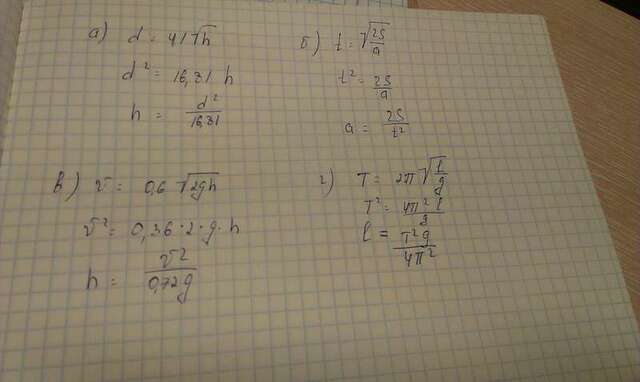 а) d = 4,1√h
d² = 16,81 h
h = d²/16,81
б) t = √(2S/a)
t² = 2S/a
a = 2S/t²
в) v = 0,6 √(2gh)
v² = 0,36 · 2 · g · h
h = v²/0,72g
г) T = 2π√(l/g)
T² = 4π² l/g
l = T²g/4π²